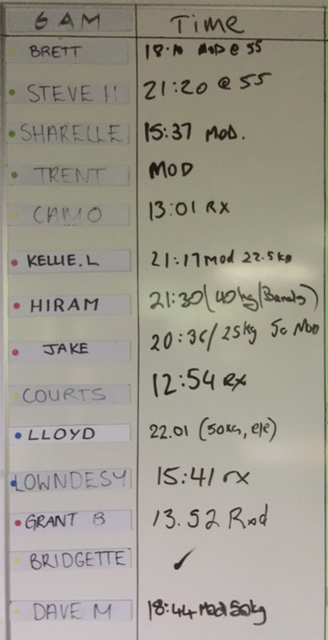 6 AM Time
BRETT 18:10 MOD @ 55
STEVE H 21:20 @ 55
SHARELLE 15:37 MOD.
TRENT MOD
CAMO 13:01 RX
KELLIE.L 21:17 Mod 22.5kg
HIRAM 21:30 (40kg/Bands)
JAKE 20:36/25kg Mod
COURTS 12:54 Rx
LLOYD 22.01 (50kg,
LOWNDESY 15:41 rx
GRANT B 13.52
BRIDGETTE ✓
DAVE M 18:44 Mod 50kg